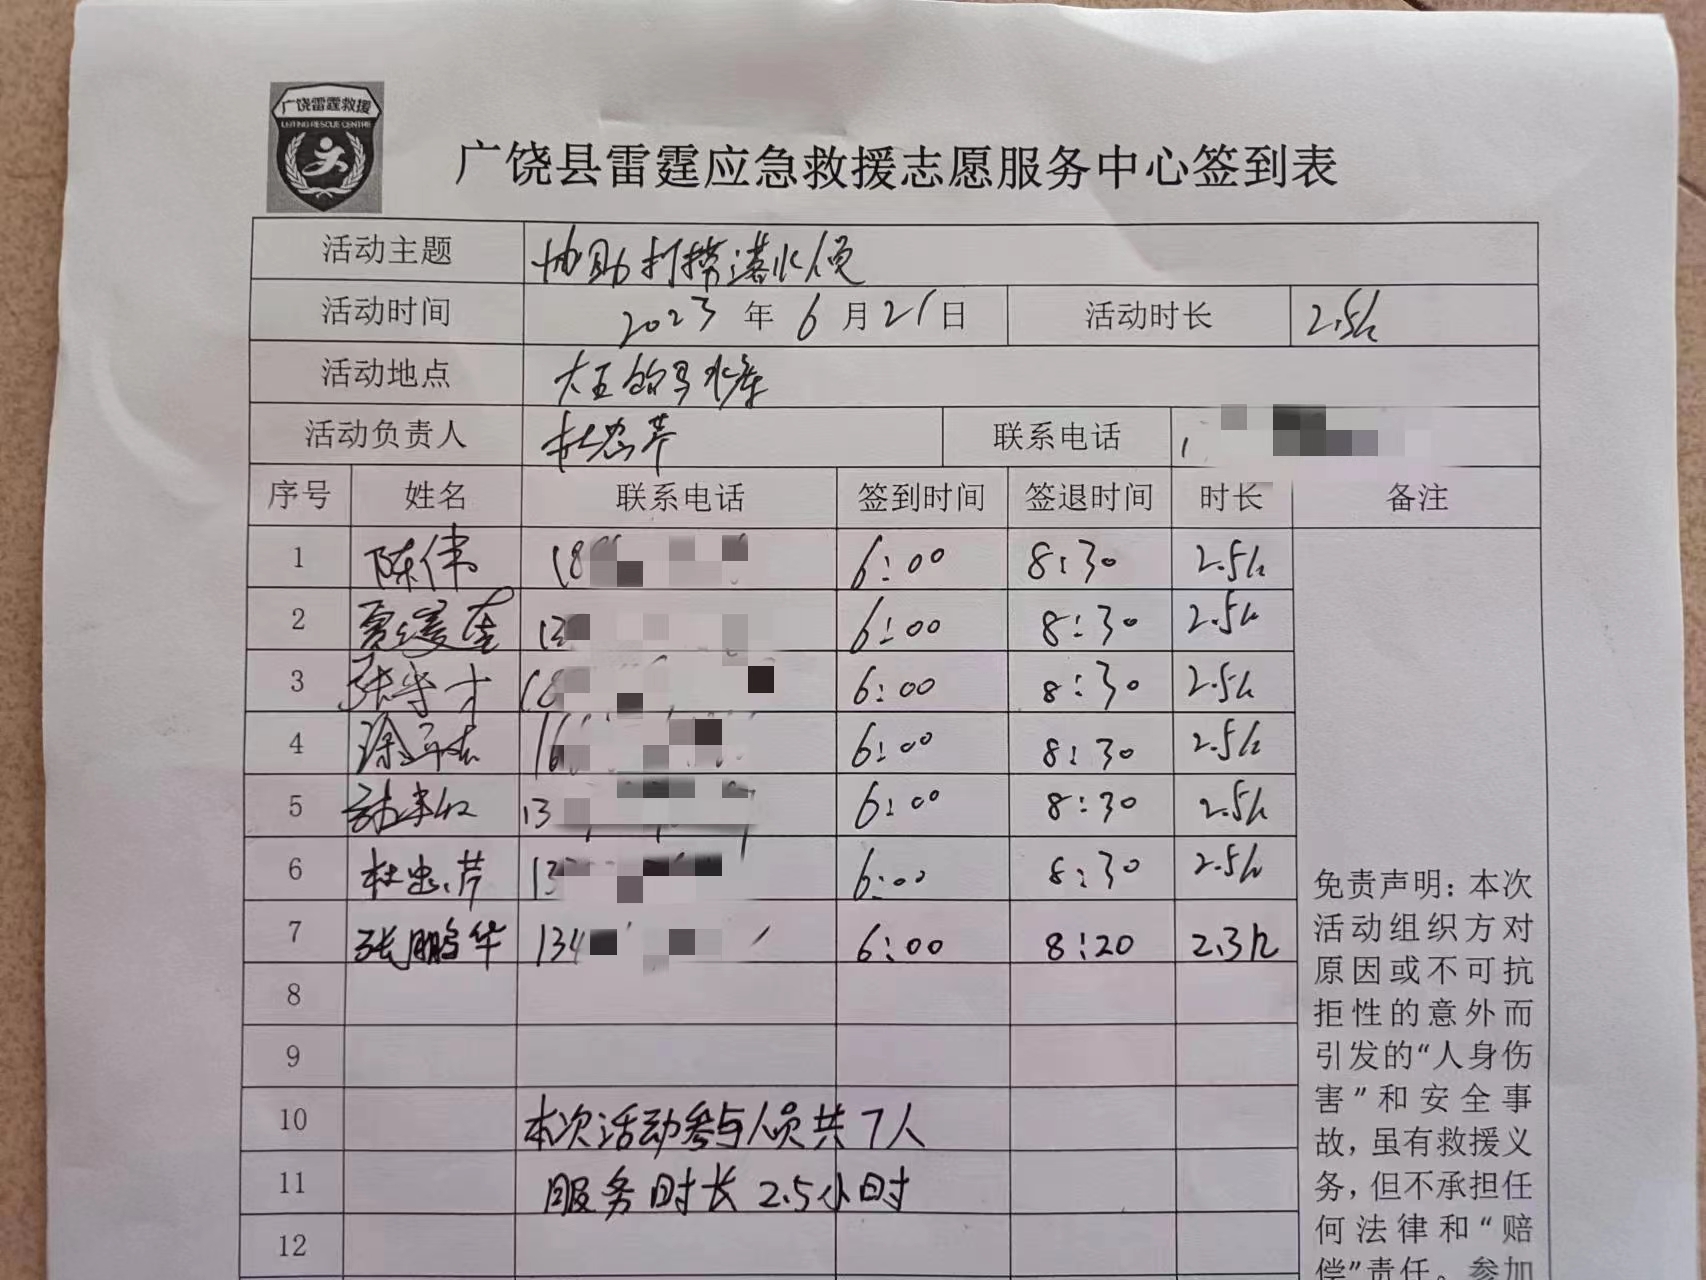 广饶雷霆救援
LEITING RESCUE CENTRE
广饶县雷霆应急救援志愿服务中心签到表
活动主题 协助打捞落水人员
活动时间 2023年6月21日 活动时长 2.5h
活动地点 大王饮马水库
活动负责人 杜忠芹 联系电话 1
序号 姓名 联系电话 签到时间 签退时间 时长 备注
1 陈伟 18 6:00 8:30 2.5h
2 13 6:00 8:30 2.5h
3 张守才 18 6:00 8:30 2.5h
4 16 6:00 8:30 2.5h
5 13 6:00 8:30 2.5h
6 杜忠芹 13 6:00 8:30 2.5h
7 张鹏华 134 6:00 8:20 2.3h
8
9
10 本次活动参与人员共7人
11 服务时长2.5小时
12
免责声明：本次
活动组织方对
原因或不可抗
拒性的意外而
引发的“人身伤
害”和安全事
故，虽有救援义
务，但不承担任
何法律和“赔
偿”责任。参加